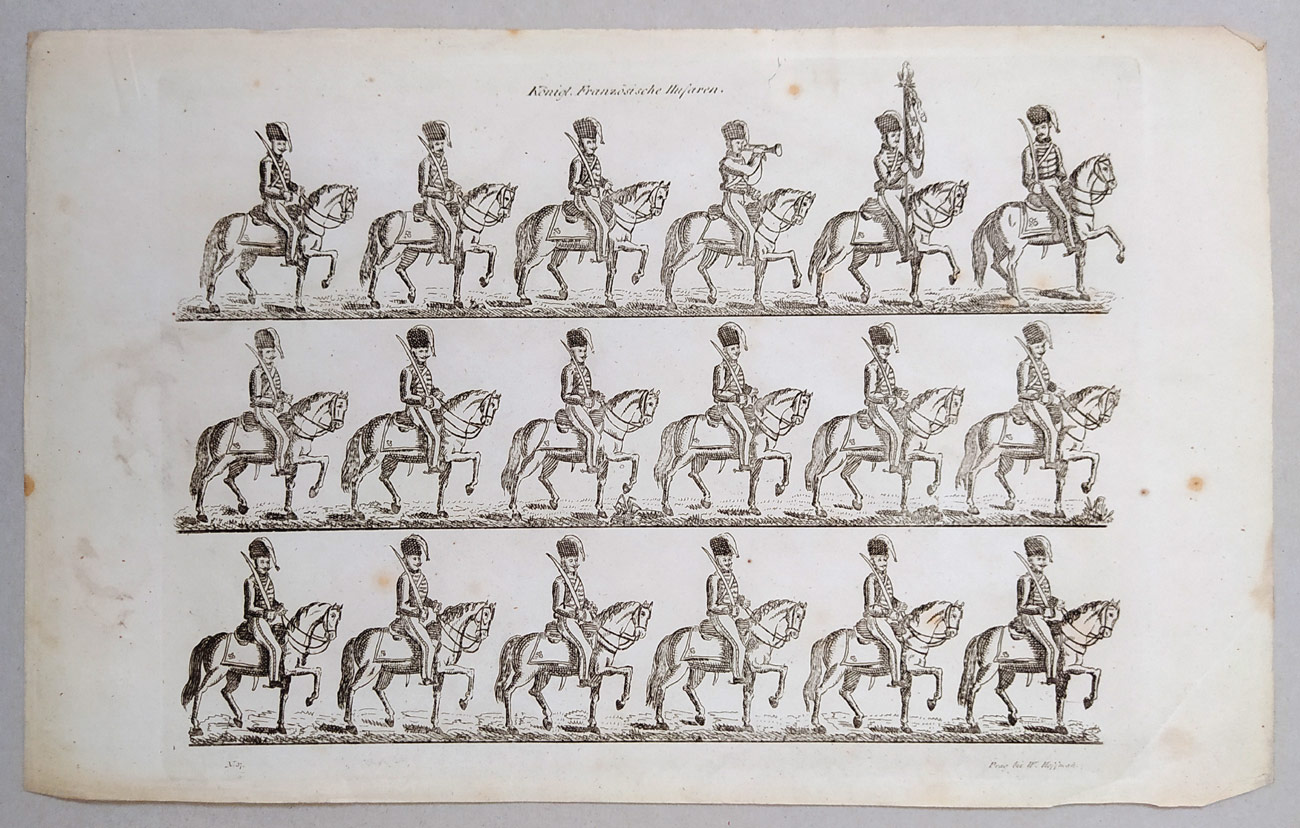 Königl. Französische Husaren.
Prag bei W. Hoffmann